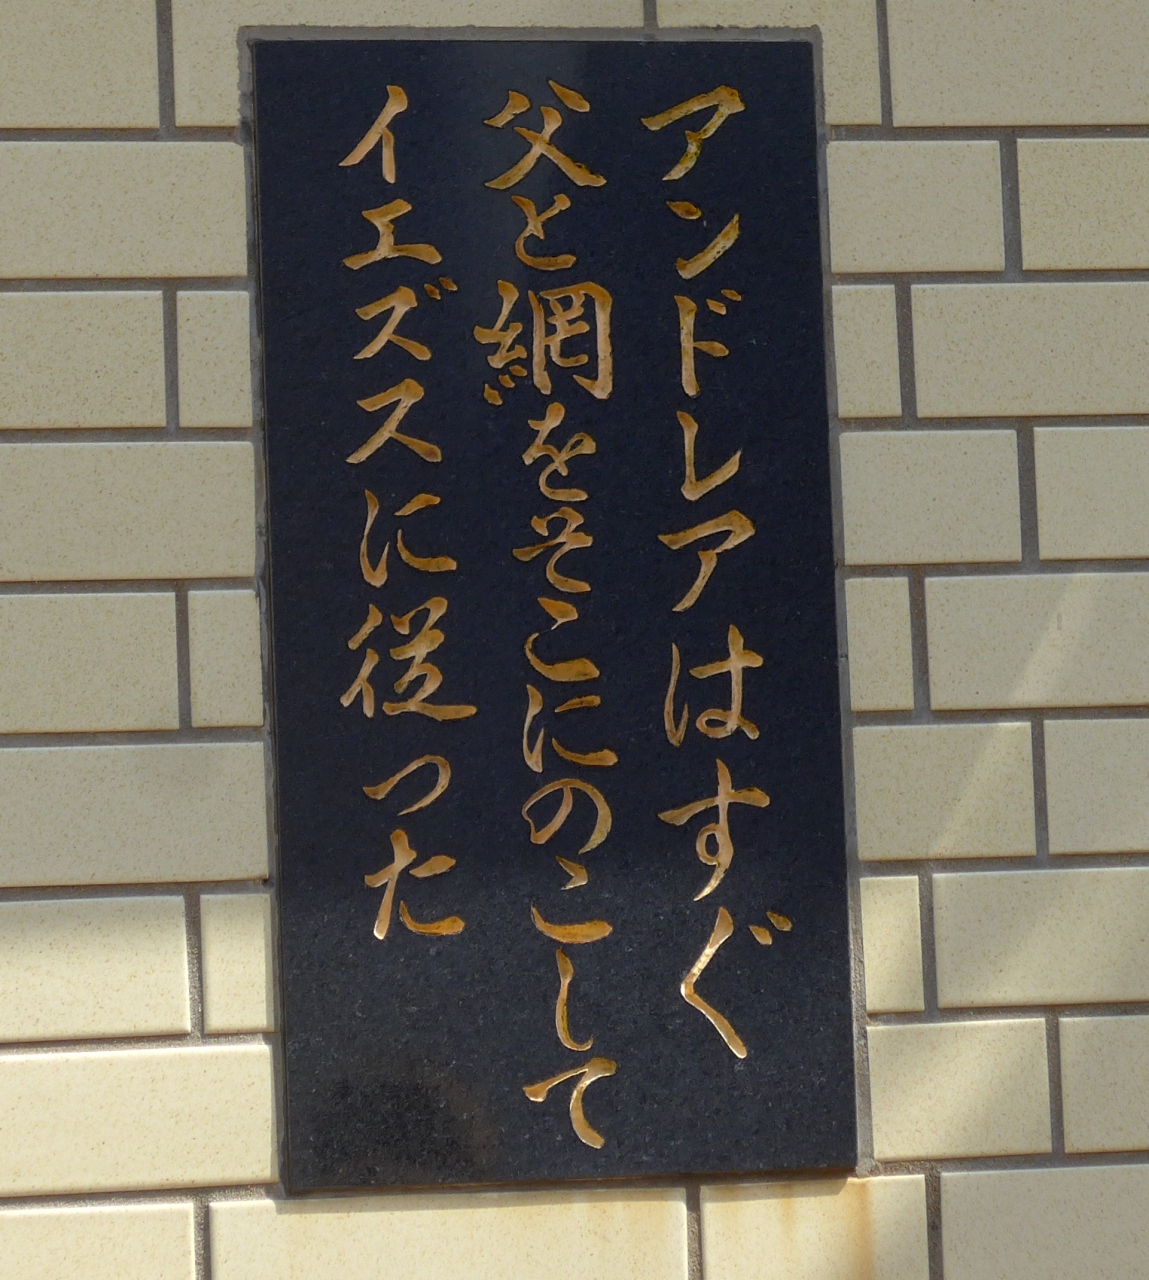 アンドレアはすぐ
父と網をそこにのこして
イエズスに従った